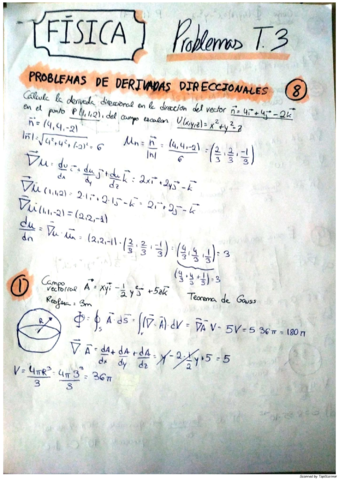 FÍSICA
Problemas T.3
PROBLEMAS DE DERIVADAS DIRECCIONALES
8
Calcula la derivada direccional en la dirección del vector n⃗=4i⃗+4j⃗-2k⃗
en el punto P(1,1,2), del campo escalar U(x,y,z)=x²+y²-z
n⃗=(4,4,-2)
|n|=√4²+4²+(-2)²=6
μn=n⃗/|n|=(4,4,-2)/6=(2/3,2/3,-1/3)
∇⃗u=du/dx i⃗+du/dy j⃗+du/dz k⃗=2xi⃗+2yj⃗-k⃗
∇⃗u(1,1,2)=2·1i⃗+2·1j⃗-k⃗=2i⃗+2j⃗-k⃗
∇⃗u(1,1,-2)=(2,2,-1)
du/dn=∇⃗u·u⃗n=(2,2,-1)·(2/3,2/3,-1/3)=(4/3,4/3,1/3)=3
(4/3+4/3+1/3)=3
1
Campo vectorial A⃗=xyi⃗-1/2y²j⃗+5zk⃗
Teorema de Gauss
R=3m
R
Φ=∮s A⃗ dS⃗=∫(∇⃗·A⃗)dV=∇⃗A⃗V=5V=5·36π=180π
∇⃗A⃗=dA/dx+dA/dy+dA/dz=y-2·1/2y+5=5
V=4πR³/3=4π3³/3=36π
Scanned by TapScanner